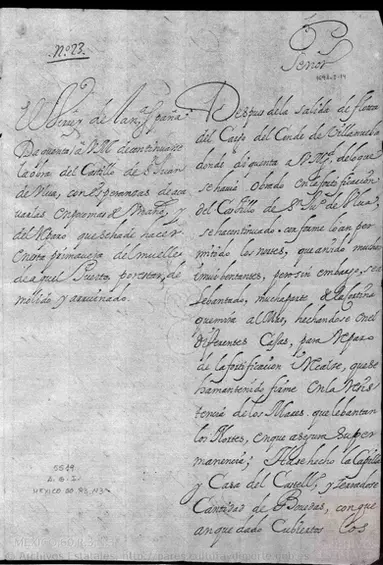 N.º 23.
Señor
El Virrey de la nª España
Da quenta a V.M. de continuarse
la obra del Castillo de S.n Juan
de Ulua, con esperanzas de aca
varlas en forma
y
del reparo que se ha de hacer
en esta primavera del muelle
de aquel Puerto, por estar de
molido y arruinado.
Despues de la salida de flota
del Cargo del Conde de Villanueba
donde di quenta a V. Mg.d de lo que
se havia obrado en la fortificacion
del Castillo de S.n Ju.o de Ulua,
se ha continuado conforme lo an per
mitido los nortes, que an sido muchos
pero sin embargo, se a
lebantado, mucha parte de la cortina
que mira al Mar, hechandose en el
diferentes Casas, para reparo
de la fortificacion Real, que se
ha mantenido firme en la resis
tencia de los Mares, que lebantan
los Nortes, en que asegura su per
manencia; Hase hecho la Capilla
y Casa del Castell.no y
Cantidad de Bovedas, con que
an quedado Cubiertos Los